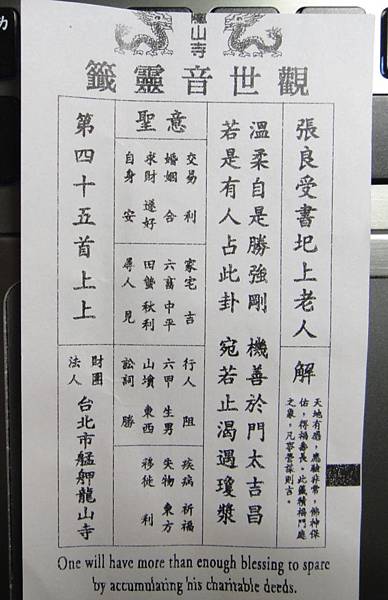 龍山寺
觀世音靈籤
張良受書圯上老人
解
天地有感，應驗非常，佛神保
佑，得福壽長。此籤積福門處
之象，凡事營謀則吉。
溫柔自是勝強剛 機善於門太吉昌
若是有人占此卦 宛若止渴遇瓊漿
聖意
交易 利
婚姻 合
求財 遂好
自身 安
家宅 吉
六畜 中平
田蠶 秋利
尋人 見
行人 阻
六甲 生男
山墳 東西
訟詞 勝
疾病 祈福
失物 東方
移徙 利
第四十五首上上
財團
法人
台北市艋舺龍山寺
One will have more than enough blessing to spare
by accumulating his charitable deeds.